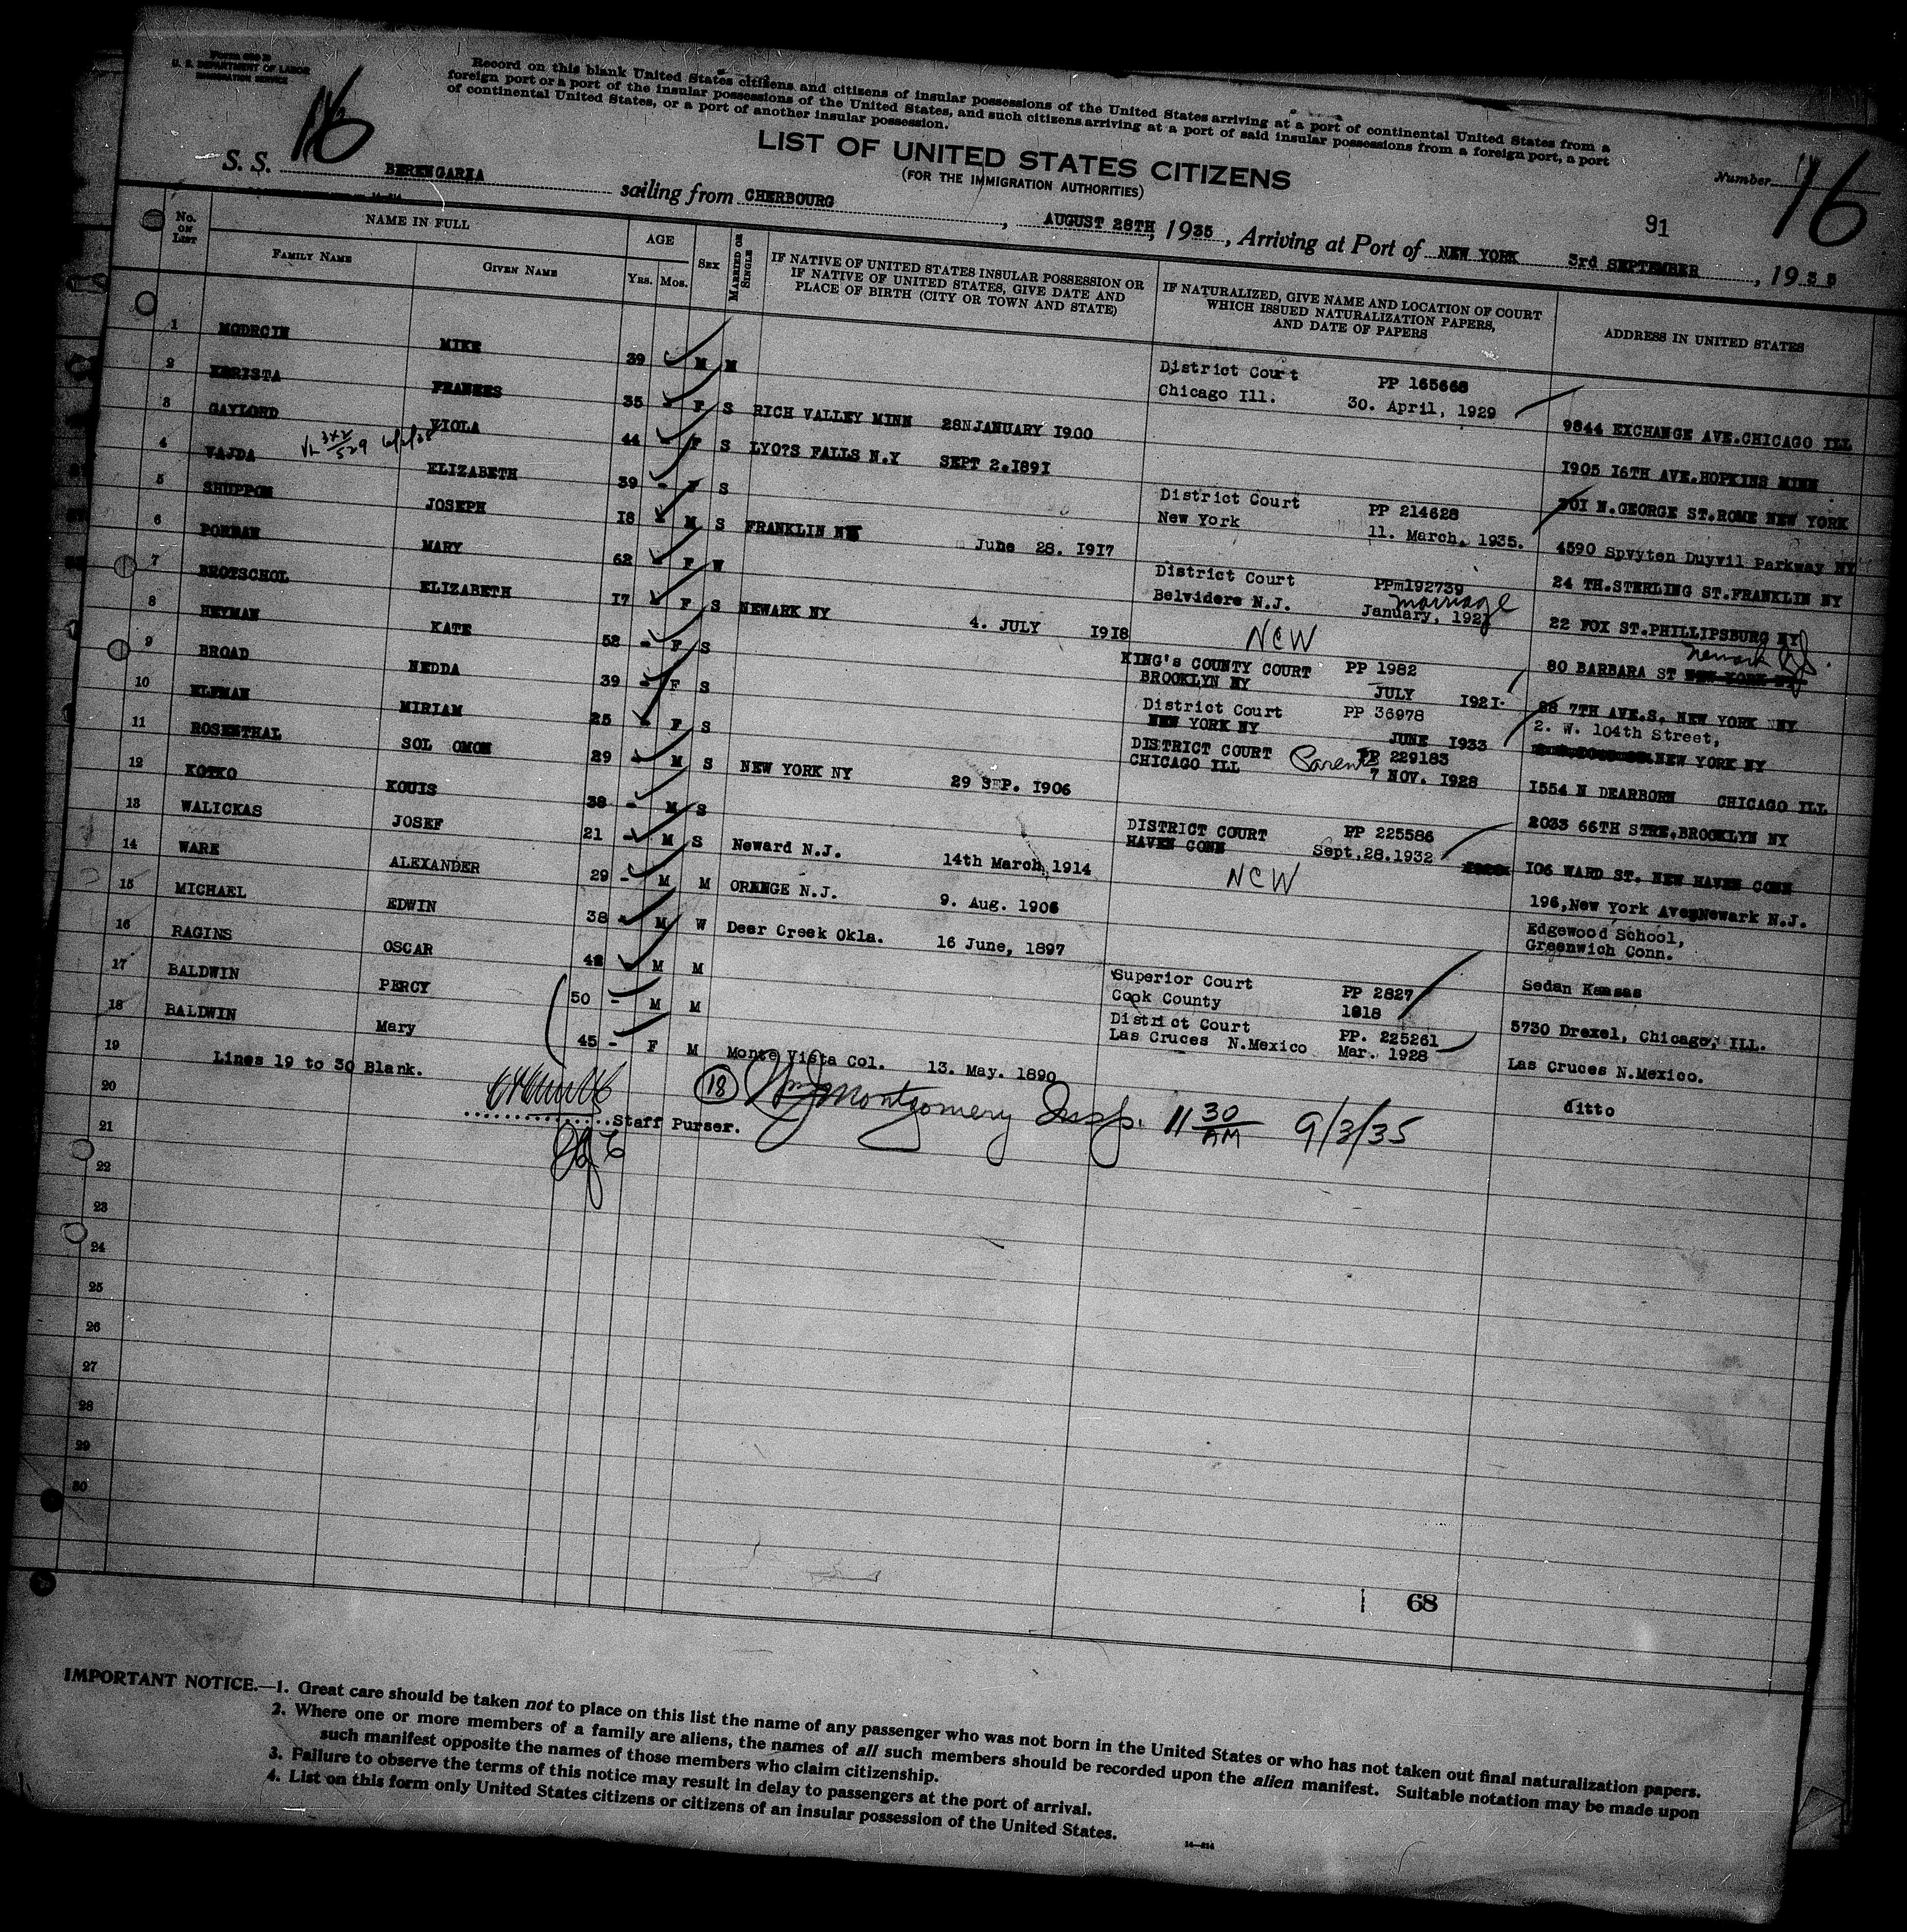 Form 630 B
U. S. DEPARTMENT OF LABOR
IMMIGRATION SERVICE
Record on this blank United States citizens and citizens of insular possessions of the United States arriving at a port of continental United States from a
foreign port or a port of the insular possessions of the United States, and such citizens arriving at a port of said insular possessions from a foreign port, a port
of continental United States, or a port of another insular possession.
16
LIST OF UNITED STATES CITIZENS
(FOR THE IMMIGRATION AUTHORITIES)
Number 16
S. S. BERENGARIA sailing from CHERBOURG, AUGUST 28TH, 1935, Arriving at Port of NEW YORK 3rd SEPTEMBER, 1935
91
No. ON LIST NAME IN FULL AGE SEX MARRIED OR SINGLE IF NATIVE OF UNITED STATES INSULAR POSSESSION OR IF NATIVE OF UNITED STATES, GIVE DATE AND PLACE OF BIRTH (CITY OR TOWN AND STATE) IF NATURALIZED, GIVE NAME AND LOCATION OF COURT WHICH ISSUED NATURALIZATION PAPERS, AND DATE OF PAPERS ADDRESS IN UNITED STATES
FAMILY NAME GIVEN NAME YRS. MOS.
1 MODRCIN MIKE 39 M M District Court Chicago Ill. PP 165668 30. April, 1929 9844 EXCHANGE AVE.CHICAGO ILL
2 35 F S RICH VALLEY MINN 28NJANUARY 1900 1905 16TH AVE.HOPKINS MINN
3 GAYLORD VIOLA 44 F S LYO?S FALLS N.Y SEPT 2.1891 701 N.GEORGE ST.ROME NEW YORK
4 VAJDA ELIZABETH 39 - F S District Court New York PP 214628 11. March, 1935. 4590 Spvyten Duyvil Parkway NY
5 JOSEPH 18 M S FRANKLIN June 28. 1917 24 TH.STERLING ST.FRANKLIN NY
6 MARY 62 F W District Court Belvidere N.J. PPm192739 marriage January, 192 22 FOX ST.PHILLIPSBURG
7 BROTSCHOL ELIZABETH 17 F S NEWARK NY 4. JULY 1918 NCW 80 BARBARA ST NEW YORK Newark NJ.
8 HEYMAN KATE 52 - F S KING's COUNTY COURT BROOKLYN NY PP 1982 JULY 1921. 88 7TH AVE.S. NEW YORK NY
9 BROAD NEDDA 39 - F S District Court NEW YORK NY PP 36978 JUNE 1933 2. W. 104th Street, NEW YORK NY
10 ELFMAN MIRIAM 25 F S DISTRICT COURT CHICAGO ILL Parents PP 229183 7 NOV. 1928 1554 N DEARBORN CHICAGO ILL
11 ROSENTHAL SOL OMON 29 M S NEW YORK NY 29 SEP. 1906 2033 66TH STRE.BROOKLYN NY
12 KOTKO KOUIS 38 - M S DISTRICT COURT HAVEN CONN PP 225586 Sept,28.1932 106 WARD ST. NEW HAVEN CONN
13 WALICKAS JOSEF 21 M S Neward N.J. 14th March, 1914 NCW 196,New York Ave Newark N.J.
14 WARE ALEXANDER 29 - M M ORANGE N.J. 9. Aug. 1906 Edgewood School, Greenwich Conn.
15 MICHAEL EDWIN 38 - M W Deer Creek Okla. 16 June, 1897 Sedan Kansas
16 RAGINS OSCAR 42 M M Superior Court Cook County PP 2827 1918 5730 Drexel, Chicago, ILL.
17 BALDWIN PERCY 50 - M M District Court Las Cruces N.Mexico PP. 225261 Mar. 1928 Las Cruces N.Mexico.
18 BALDWIN Mary 45 - F M Monte Vista Col. 13. May. 1890 ditto
19 Lines 19 to 30 Blank.
20 Staff Purser. 18 Wm J Montgomery Insp. 11 30 AM 9/3/35
21
22
23
24
25
26
27
28
29
30
68
IMPORTANT NOTICE.—1. Great care should be taken not to place on this list the name of any passenger who was not born in the United States or who has not taken out final naturalization papers.
2. Where one or more members of a family are aliens, the names of all such members should be recorded upon the alien manifest. Suitable notation may be made upon
such manifest opposite the names of those members who claim citizenship.
3. Failure to observe the terms of this notice may result in delay to passengers at the port of arrival.
4. List on this form only United States citizens or citizens of an insular possession of the United States.
14—814